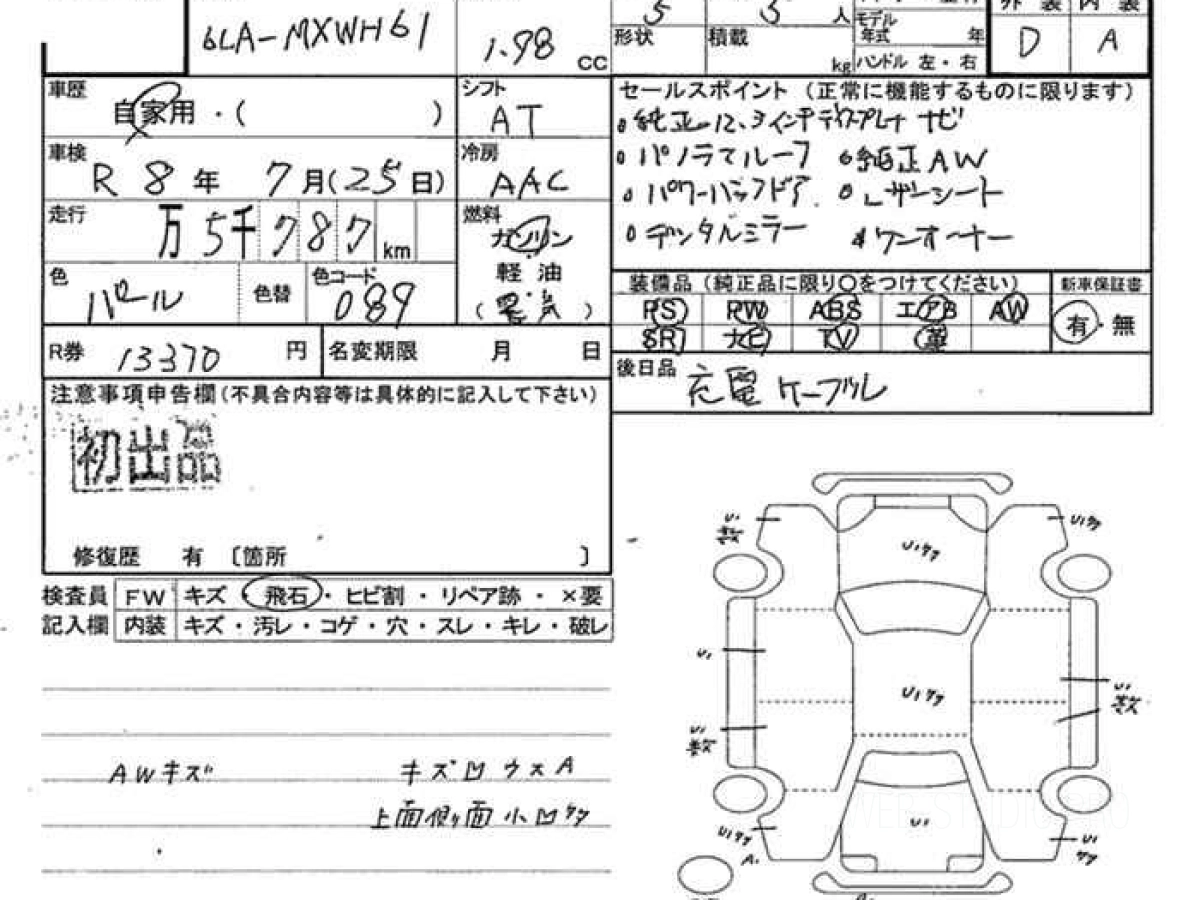 5 3 人
外装 内装
6LA-MXWH61
1.98 CC
形状 積載 kg
モデル年式 年
ハンドル 左・右
D A
車歴 自家用・( )
シフト AT
セールスポイント (正常に機能するものに限ります)
純正12.3インチディスプレイ ナビ
パノラマルーフ 純正AW
パワーバックドア レザーシート
デジタルミラー ワンオーナー
車検 R8年 7月(25日)
冷房 AAC
走行 万5千787km
燃料 ガソリン
軽・油
(電気)
色 パール 色替 色コード 089
装備品 (純正品に限り○をつけてください) 新車保証書
PS PW ABS エアB AW 有・無
SR ナビ TV 革
R券 13370 円 名変期限 月 日
後日品 充電ケーブル
注意事項申告欄(不具合内容等は具体的に記入して下さい)
初出品
修復歴 有 〔箇所 〕
検査員 FW キズ・飛石・ヒビ割・リペア跡・×要
記入欄 内装 キズ・汚レ・コゲ・穴・スレ・キレ・破レ
AWキズ キズ凹ウスA
上面側面小凹
U1 数
U1
U1
U1
U1
U1 数
U1 数
U1
U1
U1
A1